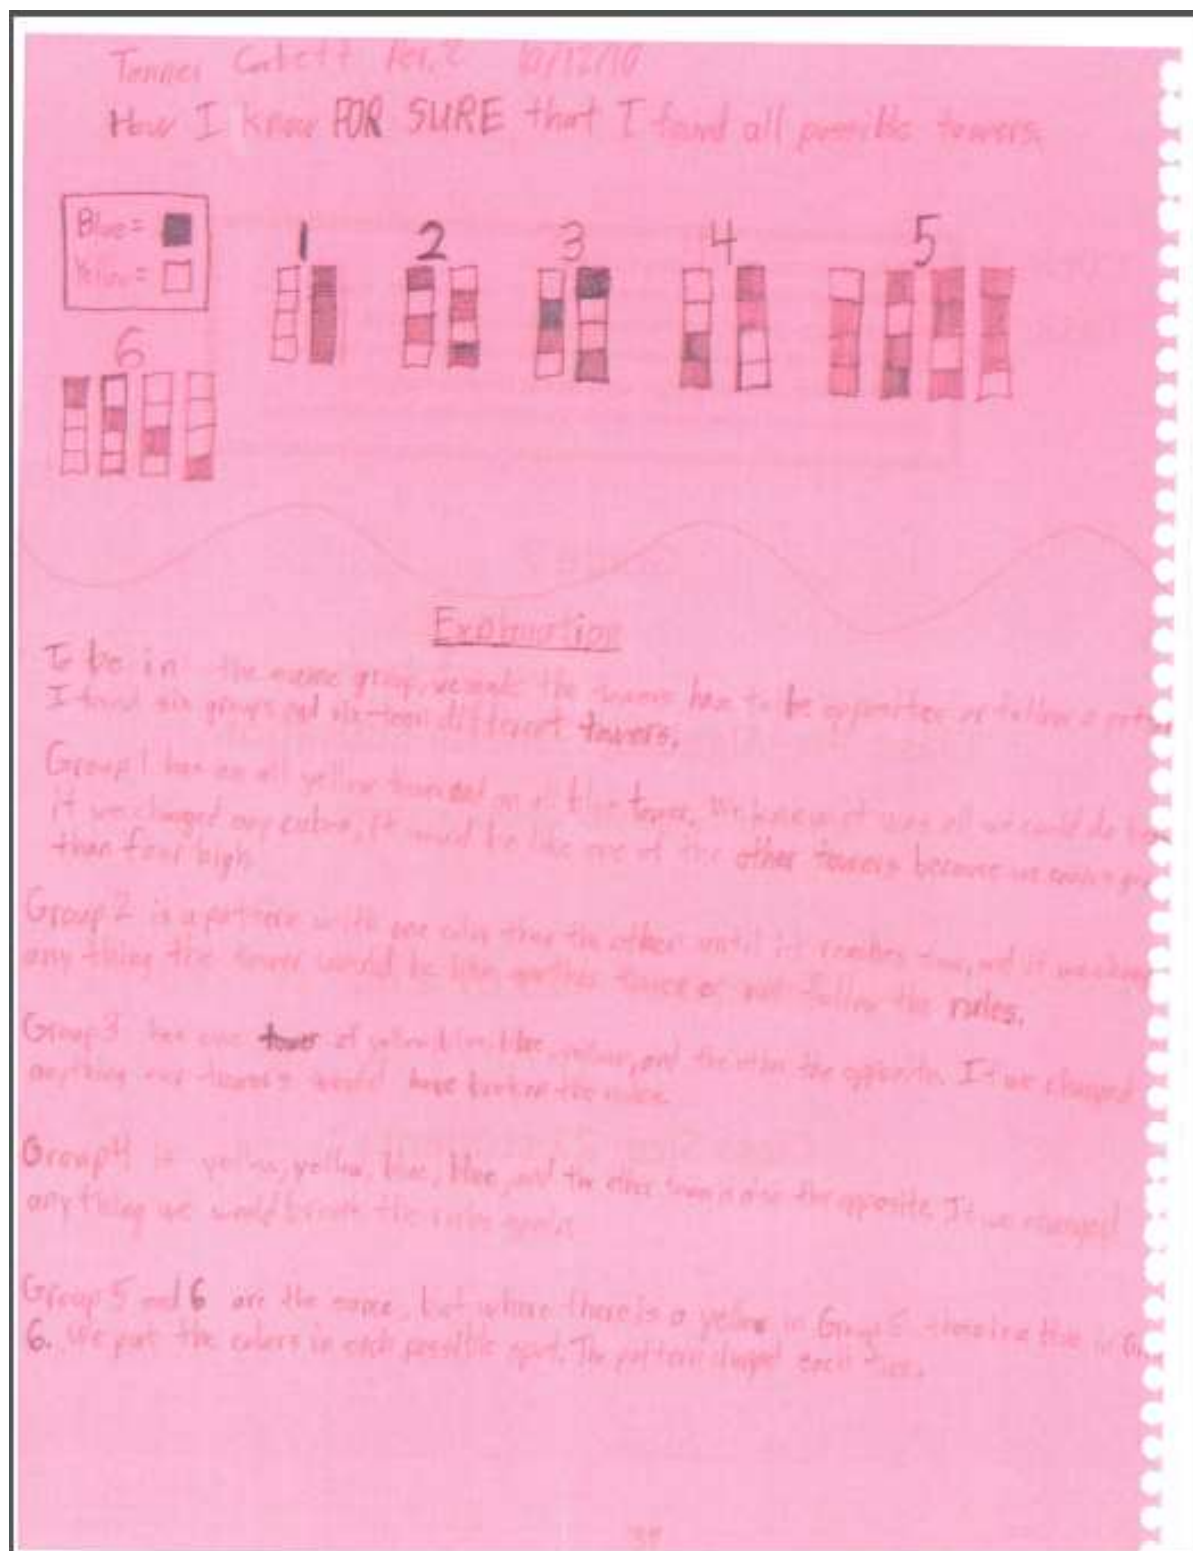 Tanner Per. 2 10/12/10
How I know FOR SURE that I found all possible towers.
Blue =
Yellow =
1 2 3 4 5
6
Explanation
To be in the same group, we made the towers have to be opposites or follow a
I found six groups and sixteen different towers.
Group 1 has an all yellow tower and an all blue tower. We knew it was all we could do
if we changed any cubes, it would be like one of the other towers because we couldn't
than four high.
Group 2 is a pattern with one color then the other until it reaches four, and if we
any thing the tower would be like another tower or not follow the rules.
Group 3 has one tower of yellow, blue, blue, yellow, and the other the opposite. If we changed
anything our towers would have broken the rules.
Group 4 is yellow, yellow, blue, blue, and the other tower is also the opposite. If we changed
any thing we would break the rules again.
Group 5 and 6 are the same, but where there is a yellow in Group 5 there is a blue in
6. We put the colors in each possible spot. The pattern changed each time.